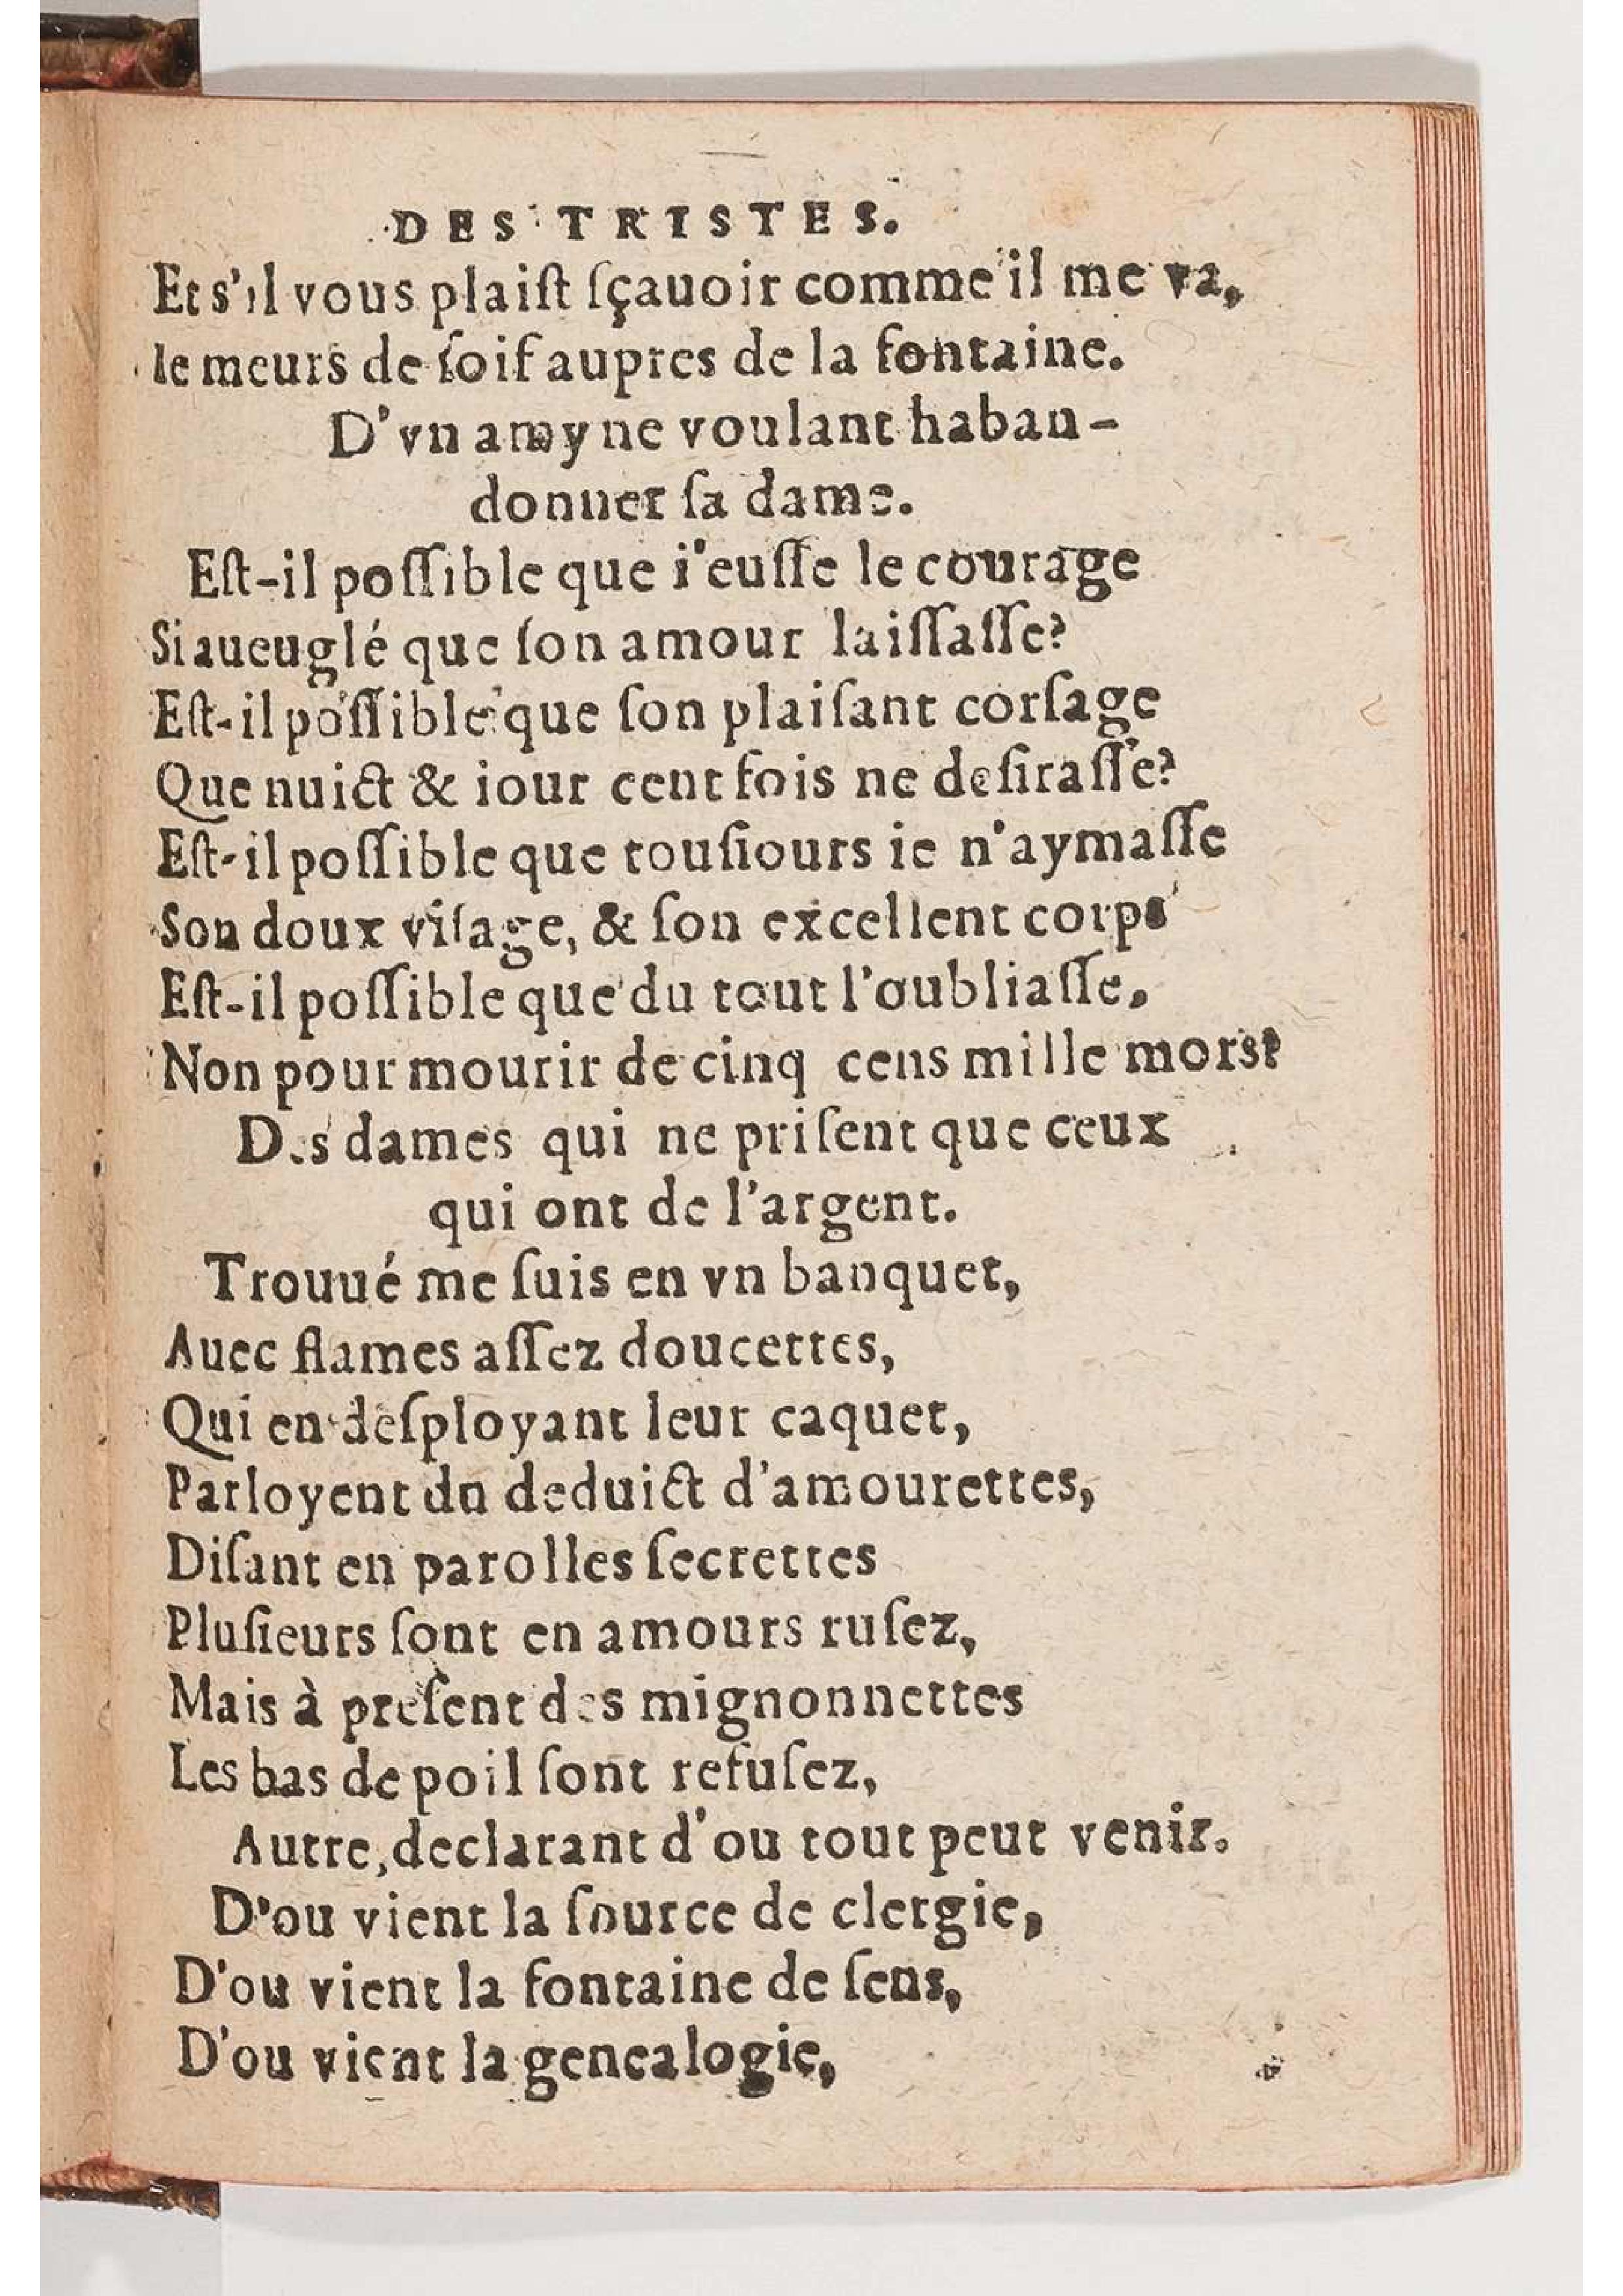 DES TRISTES.
Et s'il vous plaiſt ſçauoir comme il me va,
Ie meurs de ſoif aupres de la fontaine.
D'vn amy ne voulant haban-
donner ſa dame.
Eſt-il poſſible que i'euſſe le courage
Si aueuglé que ſon amour laiſſaſſe?
Eſt-il poſſible que ſon plaiſant corſage
Que nuict & iour cent fois ne deſiraſſe?
Eſt-il poſſible que touſiours ie n'aymaſſe
Son doux viſage, & ſon excellent corps
Eſt-il poſſible que du tout l'oubliaſſe,
Non pour mourir de cinq cens mille mors?
Des dames qui ne priſent que ceux
qui ont de l'argent.
Trouué me ſuis en vn banquet,
Auec flames aſſez doucettes,
Qui en deſployant leur caquet,
Parloyent du deduict d'amourettes,
Diſant en parolles ſecrettes
Pluſieurs ſont en amours ruſez,
Mais à preſent des mignonnettes
Les bas de poil ſont refuſez,
Autre, declarant d'ou tout peut venir.
D'ou vient la ſource de clergie,
D'ou vient la fontaine de ſens,
D'ou vient la genealogie,